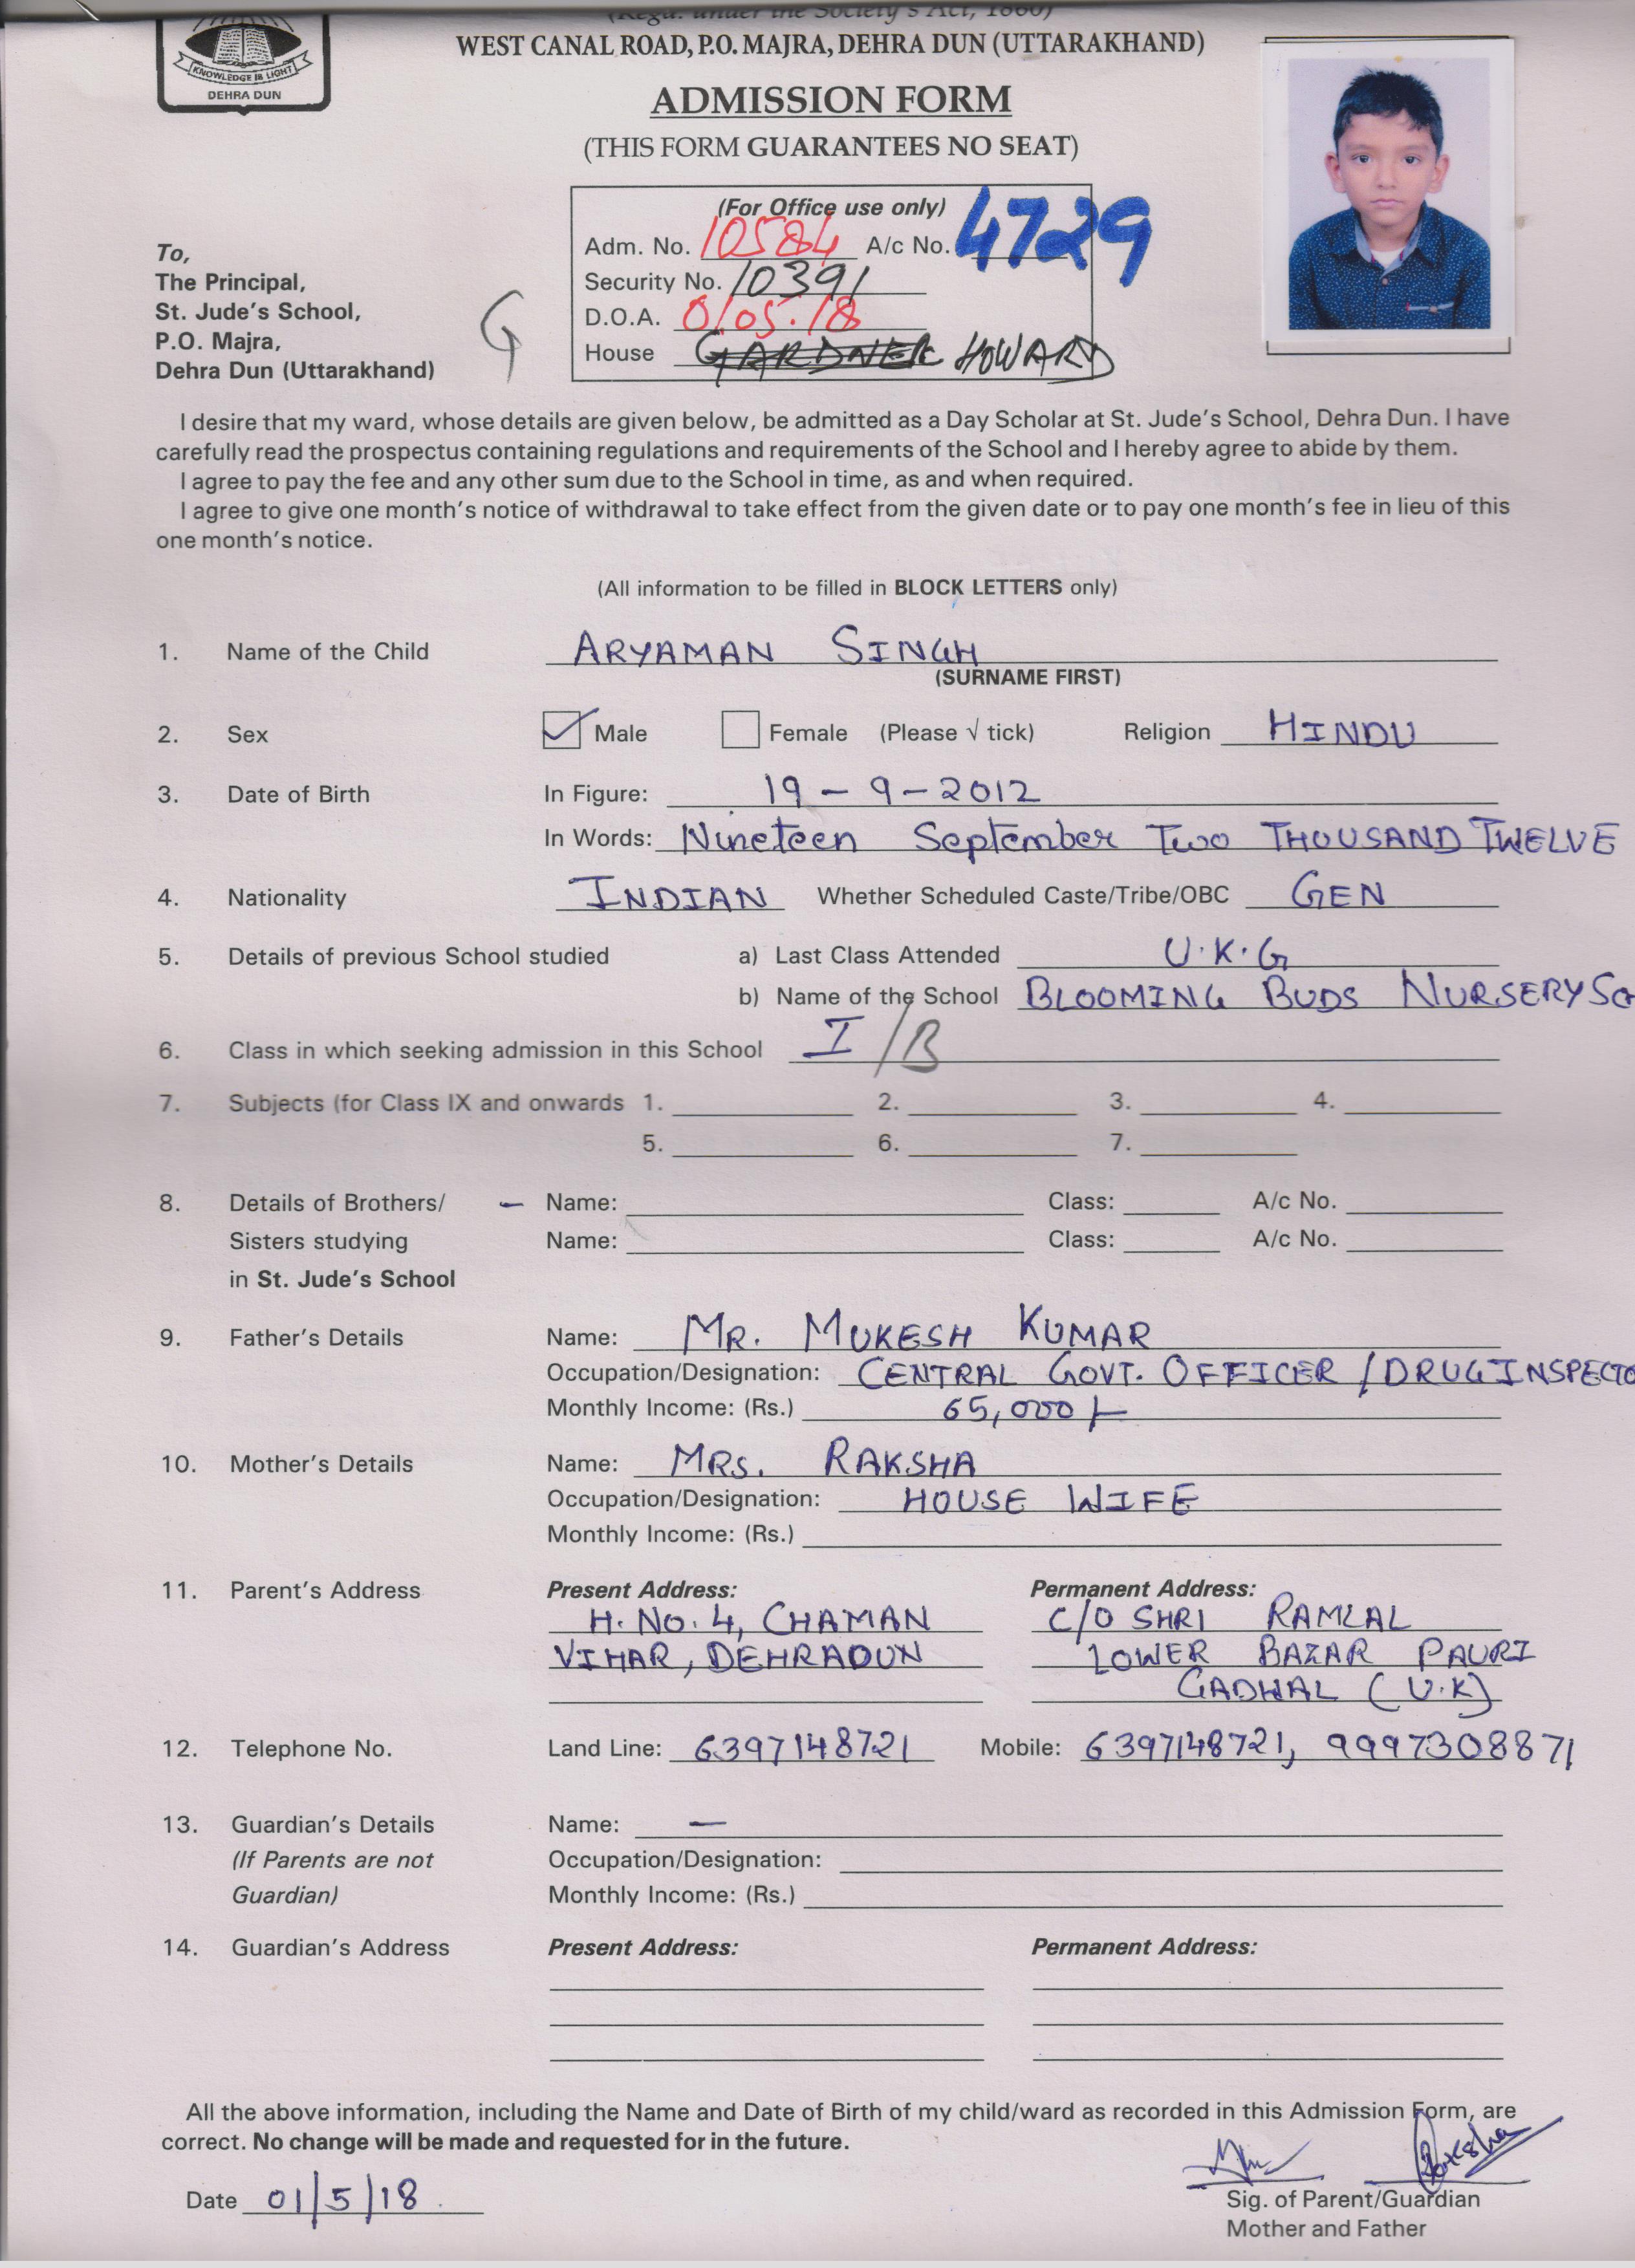 (Regd. under the Society's Act, 1860)
WEST CANAL ROAD, P.O. MAJRA, DEHRA DUN (UTTARAKHAND)
KNOWLEDGE IS LIGHT
DEHRA DUN
ADMISSION FORM
(THIS FORM GUARANTEES NO SEAT)
(For Office use only)
Adm. No. 10584 A/c No. 4729
Security No. 10391
D.O.A. 01.05.18
House GARDNER HOWARD
G
To,
The Principal,
St. Jude's School,
P.O. Majra,
Dehra Dun (Uttarakhand)
I desire that my ward, whose details are given below, be admitted as a Day Scholar at St. Jude's School, Dehra Dun. I have
carefully read the prospectus containing regulations and requirements of the School and I hereby agree to abide by them.
I agree to pay the fee and any other sum due to the School in time, as and when required.
I agree to give one month's notice of withdrawal to take effect from the given date or to pay one month's fee in lieu of this
one month's notice.
(All information to be filled in BLOCK LETTERS only)
1. Name of the Child ARYAMAN SINGH
(SURNAME FIRST)
2. Sex Male Female (Please √ tick) Religion HINDU
3. Date of Birth In Figure: 19 - 9 - 2012
In Words: Nineteen September Two THOUSAND TWELVE
4. Nationality INDIAN Whether Scheduled Caste/Tribe/OBC GEN
5. Details of previous School studied a) Last Class Attended U.K.G
b) Name of the School BLOOMING BUDS NURSERY SC
6. Class in which seeking admission in this School I /B
7. Subjects (for Class IX and onwards 1. 2. 3. 4.
5. 6. 7.
8. Details of Brothers/ – Name: Class: A/c No.
Sisters studying Name: Class: A/c No.
in St. Jude's School
9. Father's Details Name: MR. MUKESH KUMAR
Occupation/Designation: CENTRAL GOVT. OFFICER / DRUG INSPECTO
Monthly Income: (Rs.) 65,000/-
10. Mother's Details Name: MRS. RAKSHA
Occupation/Designation: HOUSE WIFE
Monthly Income: (Rs.)
11. Parent's Address Present Address: Permanent Address:
H. NO. 4, CHAMAN C/O SHRI RAMLAL
VIHAR, DEHRADUN LOWER BAZAR PAURI
GADHAL (U.K)
12. Telephone No. Land Line: 6397148721 Mobile: 6397148721, 9997308871
13. Guardian's Details Name: —
(If Parents are not Occupation/Designation:
Guardian) Monthly Income: (Rs.)
14. Guardian's Address Present Address: Permanent Address:
All the above information, including the Name and Date of Birth of my child/ward as recorded in this Admission Form, are
correct. No change will be made and requested for in the future.
Raksha
Date 01/5/18
Sig. of Parent/Guardian
Mother and Father